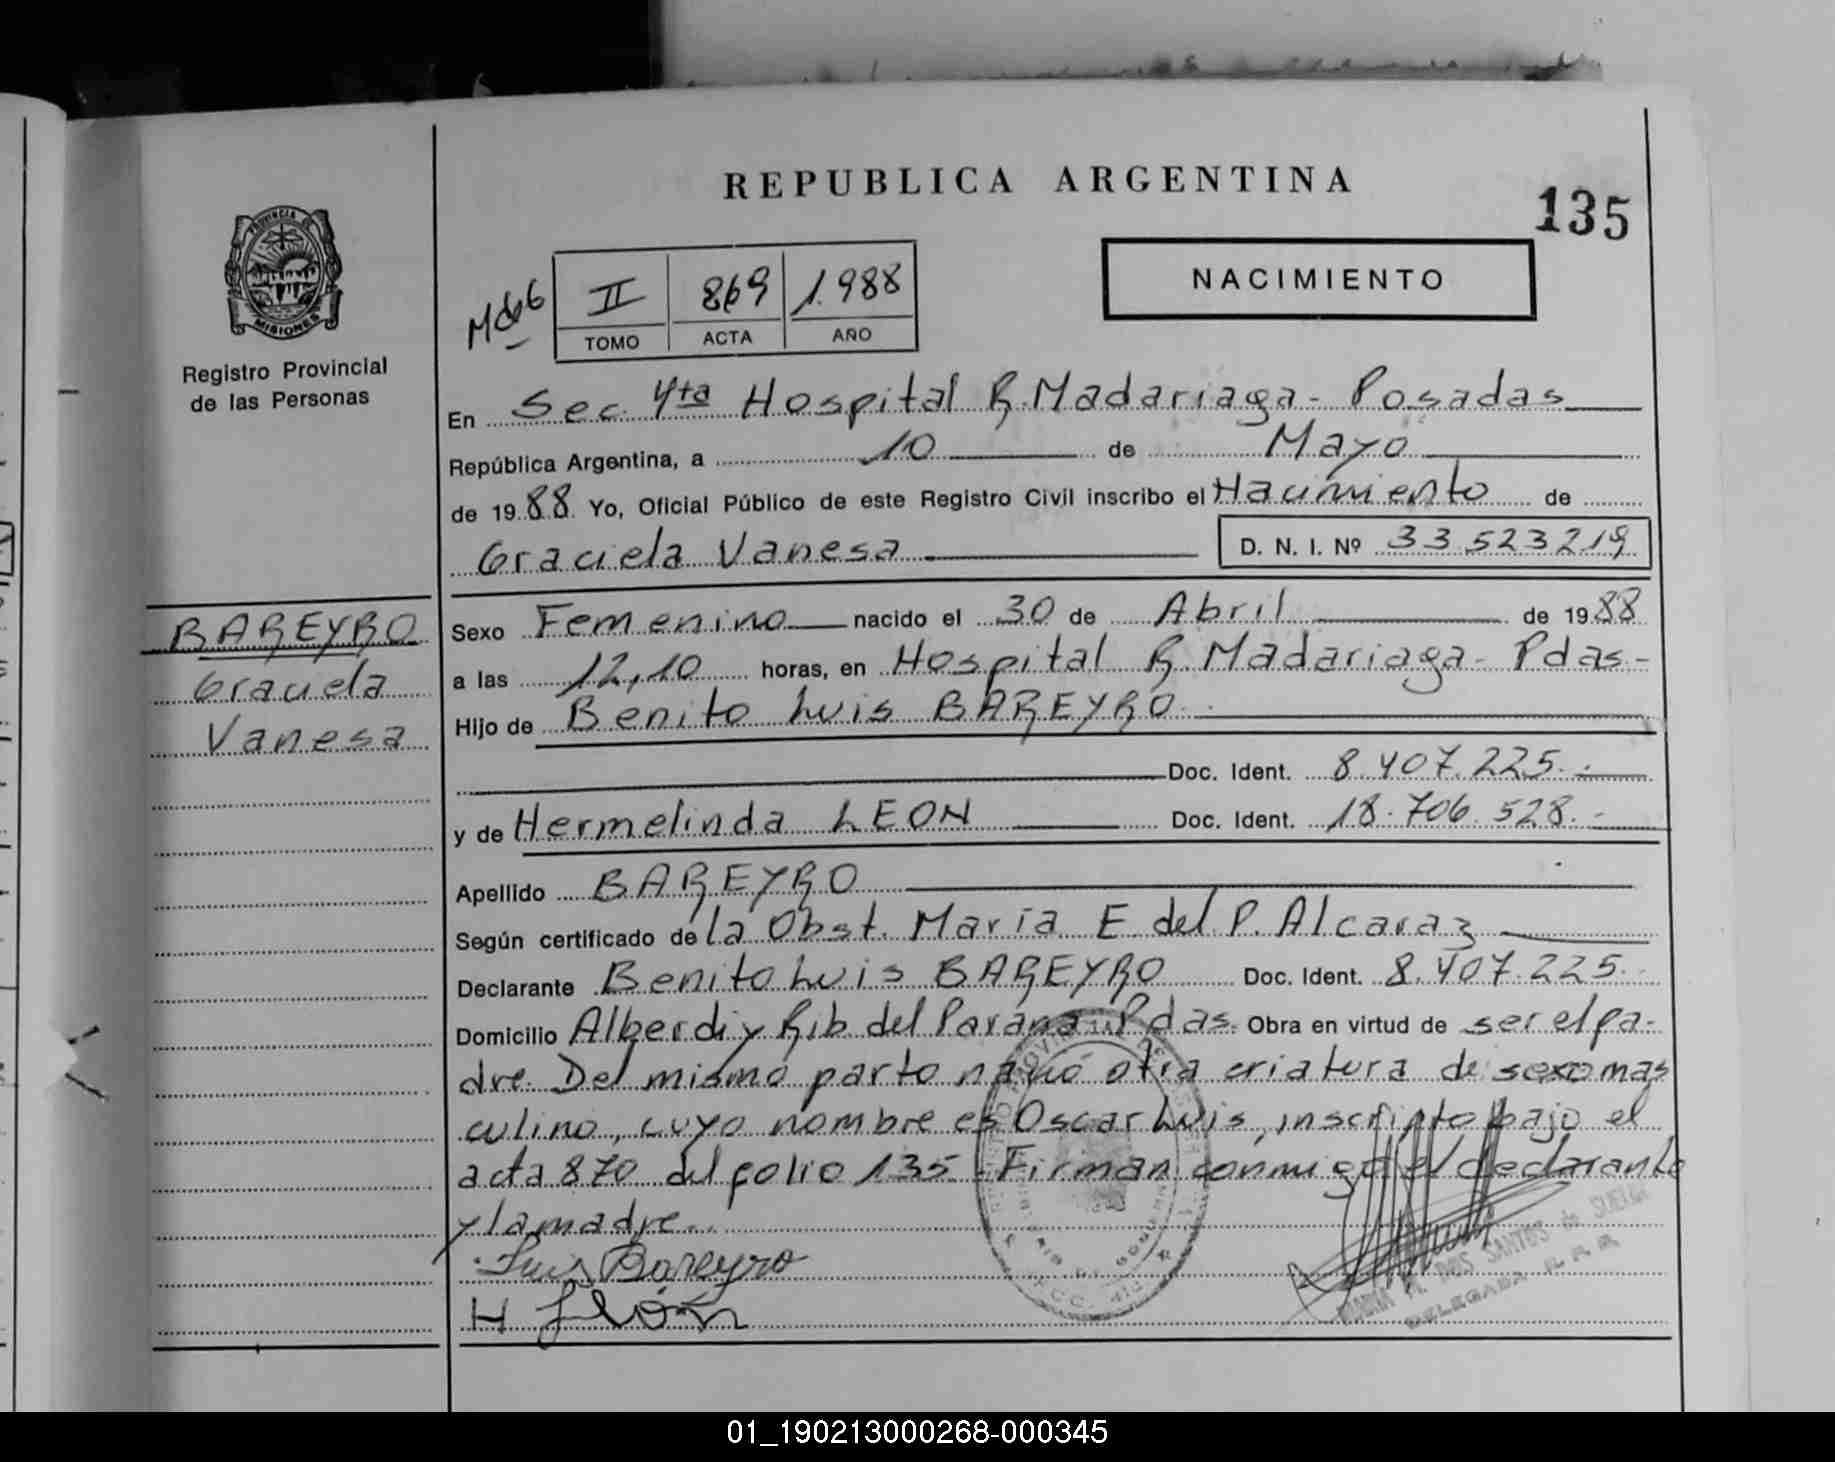 REPUBLICA ARGENTINA
135
PROVINCIA DE
MISIONES
Registro Provincial
de las Personas
II 869 1.988
TOMO ACTA AÑO
NACIMIENTO
En Sec. 4ta Hospital R. Madariaga - Posadas
República Argentina, a 10 de Mayo
de 1988 Yo, Oficial Público de este Registro Civil inscribo el Nacimiento de
Graciela Vanesa D. N. I. Nº 33 523 219
BAREYRO
Graciela
Vanesa
Sexo Femenino nacido el 30 de Abril de 1988
a las 12,10 horas, en Hospital R. Madariaga - Pdas -
Hijo de Benito Luis BAREYRO
Doc. Ident. 8.407.225.-
y de Hermelinda LEON Doc. Ident. 18.706.528.-
Apellido BAREYRO
Según certificado de la Obst. María E. del P. Alcaraz
Declarante Benito Luis BAREYRO Doc. Ident. 8.407.225.
Domicilio Alberdi y Rib. del Paraná - Pdas. Obra en virtud de ser el pa-
dre. Del mismo parto nació otra criatura de sexo mas
culino, cuyo nombre es Oscar Luis, inscripto bajo el
acta 870 del folio 135 - Firman conmigo el declarante
y la madre.
Luis Bareyro
H León
MARIA M. DOS SANTOS de
DELEGADA
01_190213000268-000345